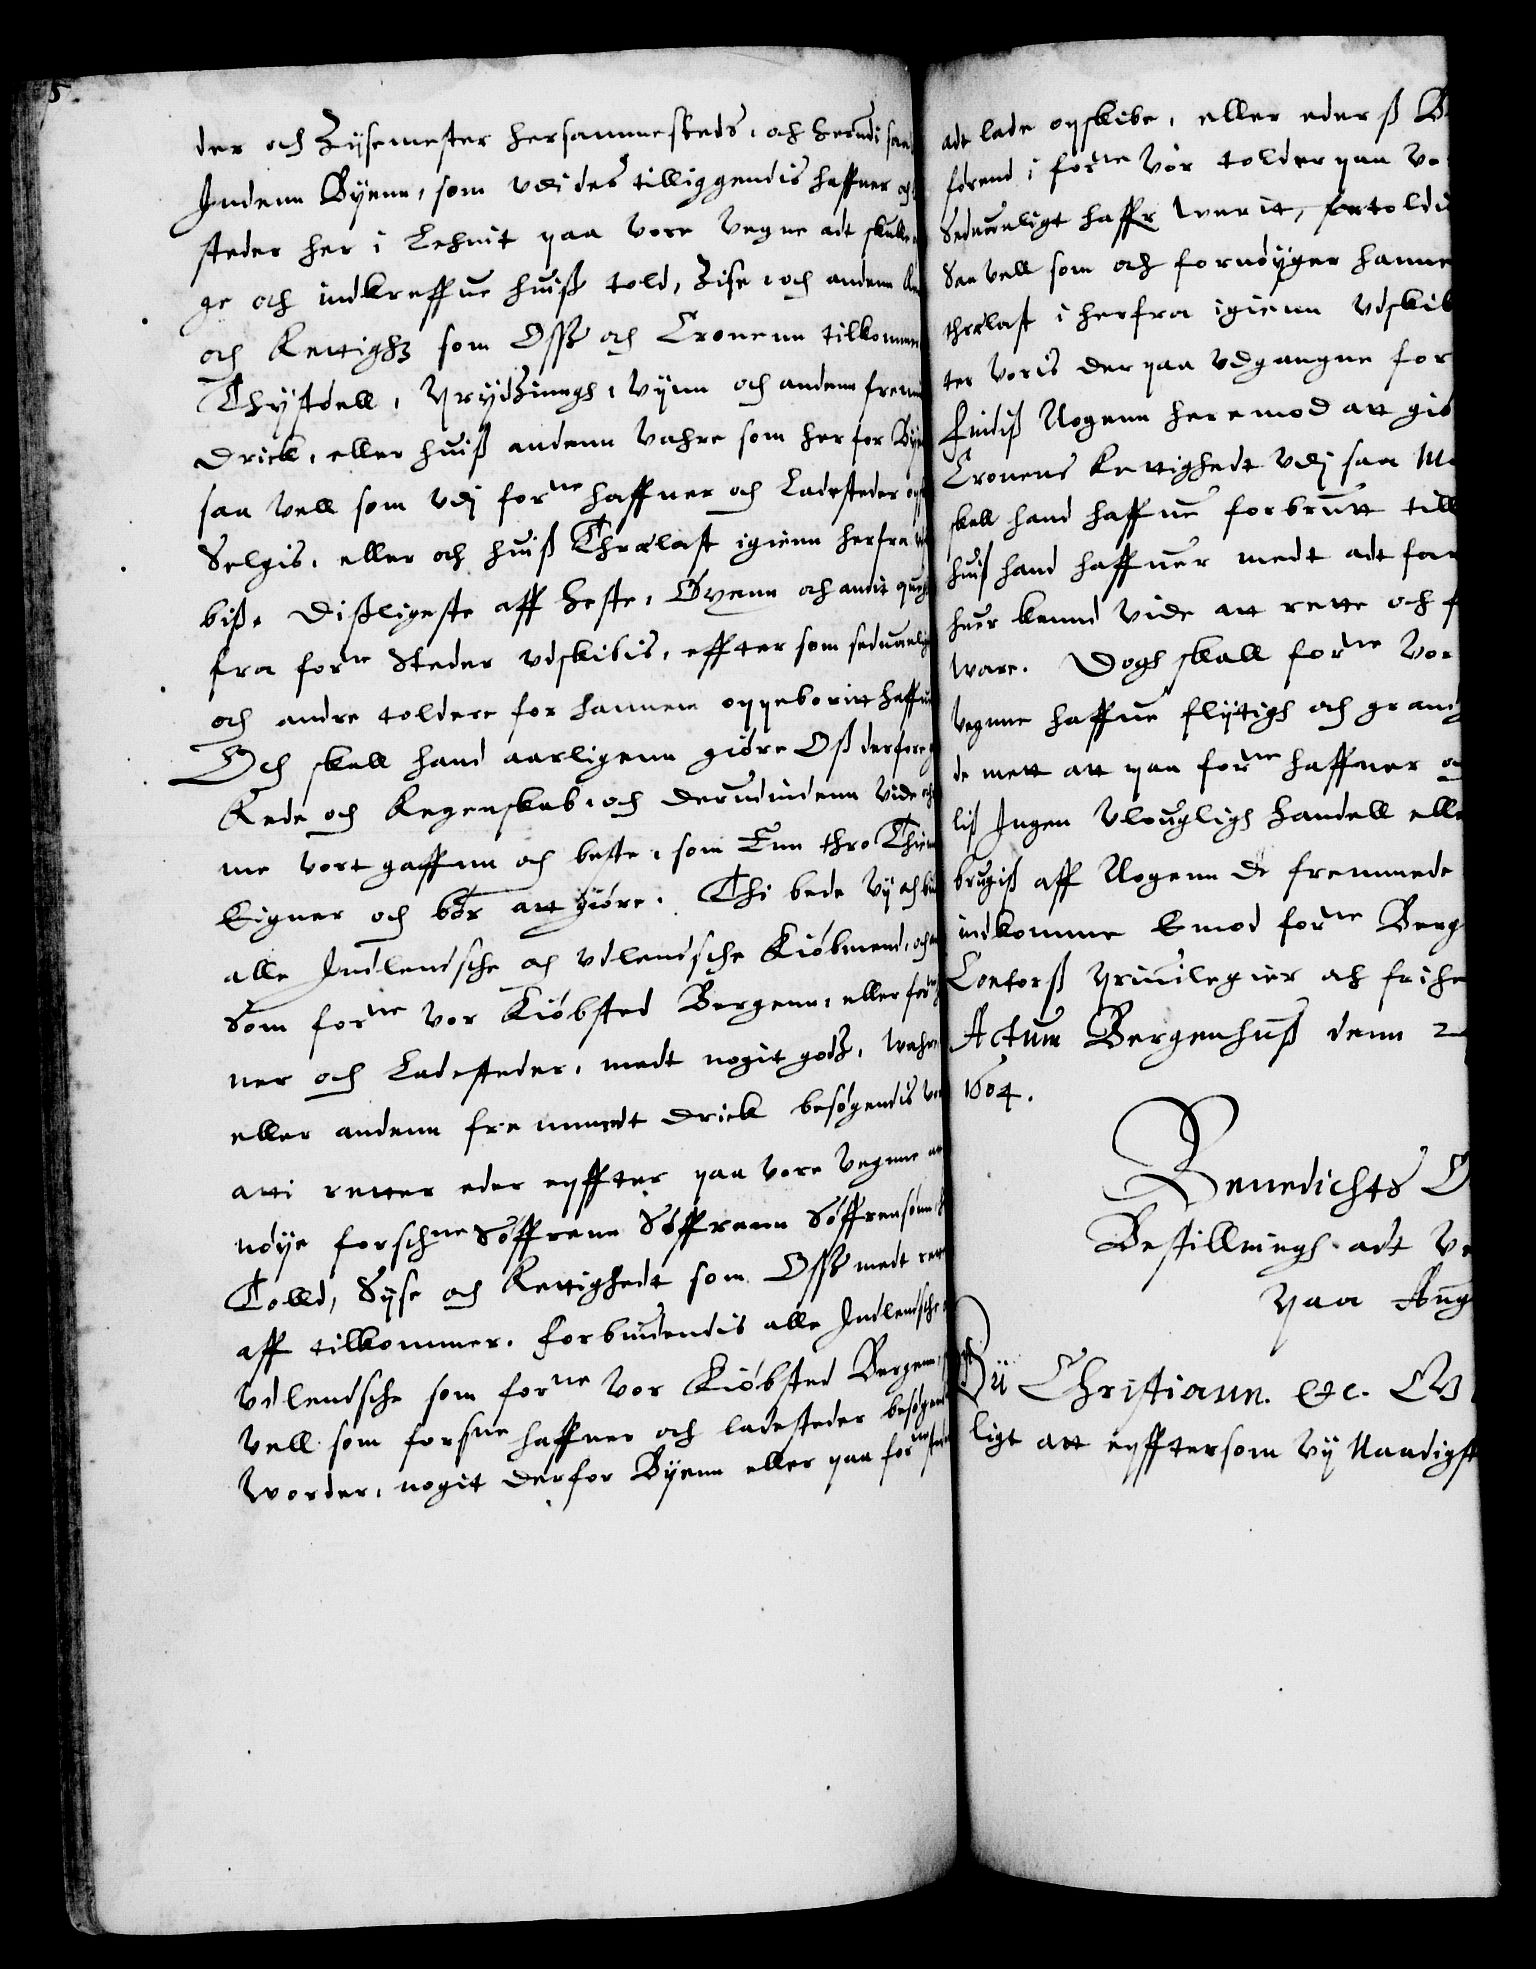 5.
der och Zÿsemester hersammesteds, och herudi saa
Indenn Bÿenn, som vdi des tilliggendis haffner och
steder her i Lehnit paa vore vegne adt skulle
ge och indkreffue huiß told, Zise, och andenn
och Rettighz som Osß och Cronenn tilkommer
Thÿstøell, Prÿdzinngh, Vÿnn och andenn fremm
Drick, eller huiß andenn Vahre som her for Bÿe
saa vell som vdj forne haffner och Ladesteder
Selgis, eller och huiß Thrælast igienn herfra
bis. Dißligeste aff Heste, Øxenn och andit queg
fra forne Steder vdskibis, effter som seduanligt
och andre toldere for hannem oppeboritt haffue
Och skall hand aarligenn giøre Oß derfore
Rede och Regenskab, och derudindenn vide
me vort gaffnn och beste, som Enn thro Thiene
Eigner och bør att giøre. Thi bede Vÿ och
alle Indlendsche och Vdlendsche Kiøbmend, och
Som forne vor Kiøbsted Bergenn, eller forne
ner och Ladesteder, medt nogit godz, wahre
eller andenn fremmedt drick besøgendis
atti retter eder epffter paa vore vegnne
nøÿe forschne Søffrenn Søffrenn Søffrensønn
Tolld, Sÿse och Rettighedt som Osß medt rette
aff tilkommer. Forbiudendis alle Indlendsche
Vdlendsche som forne vor Kiøbsted Bergenn,
vell som forsne haffner och ladesteder besøgendis
worder, nogit derfor Bÿenn eller paa forne steder
adt lade opskibe, eller eders B
førend i forne vor tolder paa vo
Seduanligt haffr werit, fortoldi
Saa vell som och fornøÿger hanne
thrælast i herfra igienn vdskib
ter Voris der paa vdgangne for
findiß Nogenn heremod att giø
Cronens Rettighedt vdj saa M
skall hand haffue forbrutt till
huiß hand haffuer medt adt far
huer kannd vide att rette och f
ware. Dogh skall forne Vor
vegnne haffue flÿtigh och grand
de mett att paa forne haffner och
liß Ingen Vlougligh handell elle
brugiß aff Nogenn de fremmede
indkomme Emod forne Berg
Contorß Priuilegier och frihe
Actum Bergenhuß denn 2
1604.
Benedichts O
Bestillningh adt
paa Aug
Vÿ Christiann. etc. G
ligt att epfftersom Vÿ Naadigst